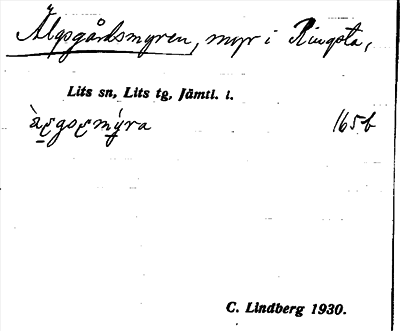 Älgsgårdsmyren, myr i Ringsta,
Lits sn, Lits tg, Jämtl. l.
165b
C. Lindberg 1930.